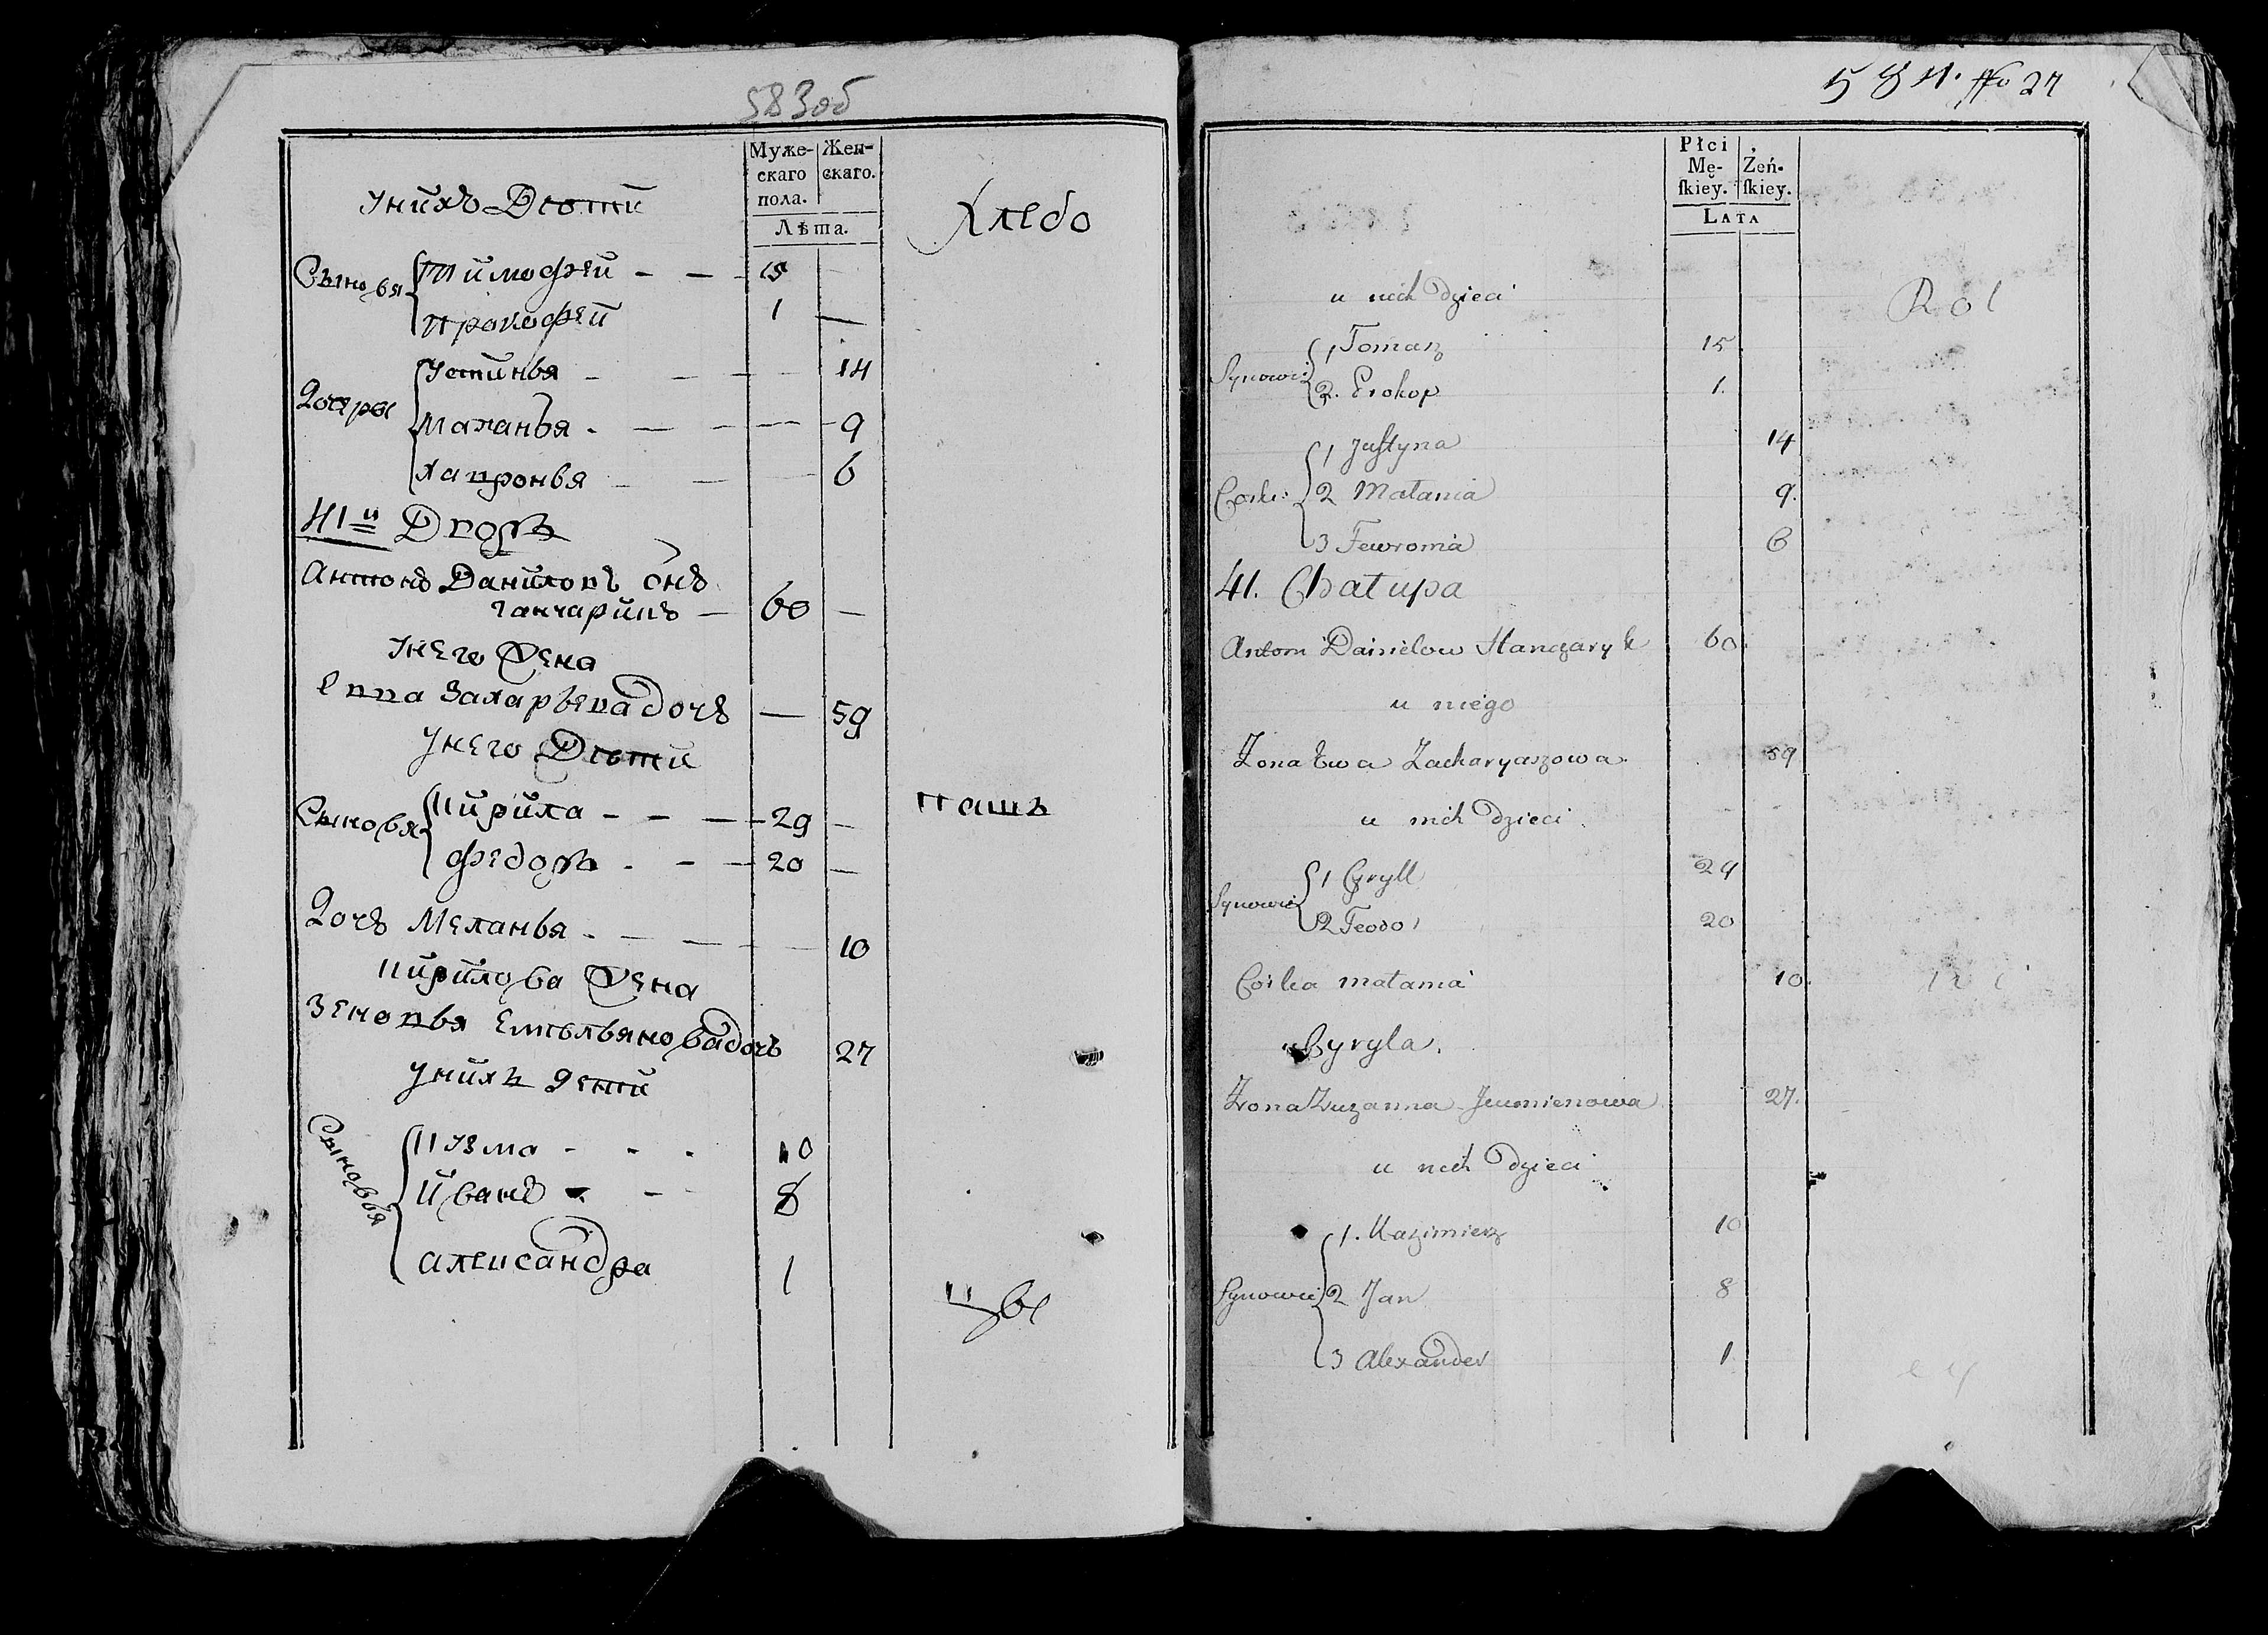 583об
Мужескаго пола. Женскаго.
Лѣта.
Унихъ Дѣти Хлебо
Сыновья Тимофей - - 15
Прокофей 1 —
Дочеры Устинья - - - 14
Маланья - - - 9
Хапронья - - 6
41й Дворъ
Антонъ Даниловъ онъ
ганчарикъ — 60 —
Унего Жена
Евва Захарьева дочь — 59
Унего Дѣти
Сыновья Кирила - - - 29 — пашъ
Федоръ - - - 20 —
Дочь Меланья - - - 10
Кирилова Жена
Зеновья Емельянова дочь 27
Унихъ дети
Сыновья Кузма - - - 10
Иванъ - - 8
Александра 1
цы
584. No 27
Płci Męſkiey. Żeńſkiey.
LATA
u nich Dzieci Rol
Synowie 1 Tomasz 15
2. Prokop 1.
Corki 1 Justyna 14
2 Małania 9.
3 Fewronia 6
41. Chałupa
Antoni Danielow Hanczaryk 60.
u niego
Zona Ewa Zacharyaszowa. 59
u nich dzieci
Synowie 1 Cyryll 29
2 Teodor 20
Corka małania 10.
u Cyryla.
Zona Zuzanna 27.
u nich Dzieci
Synowie 1. Kazimierz 10
2 Jan 8
3 Alexander 1